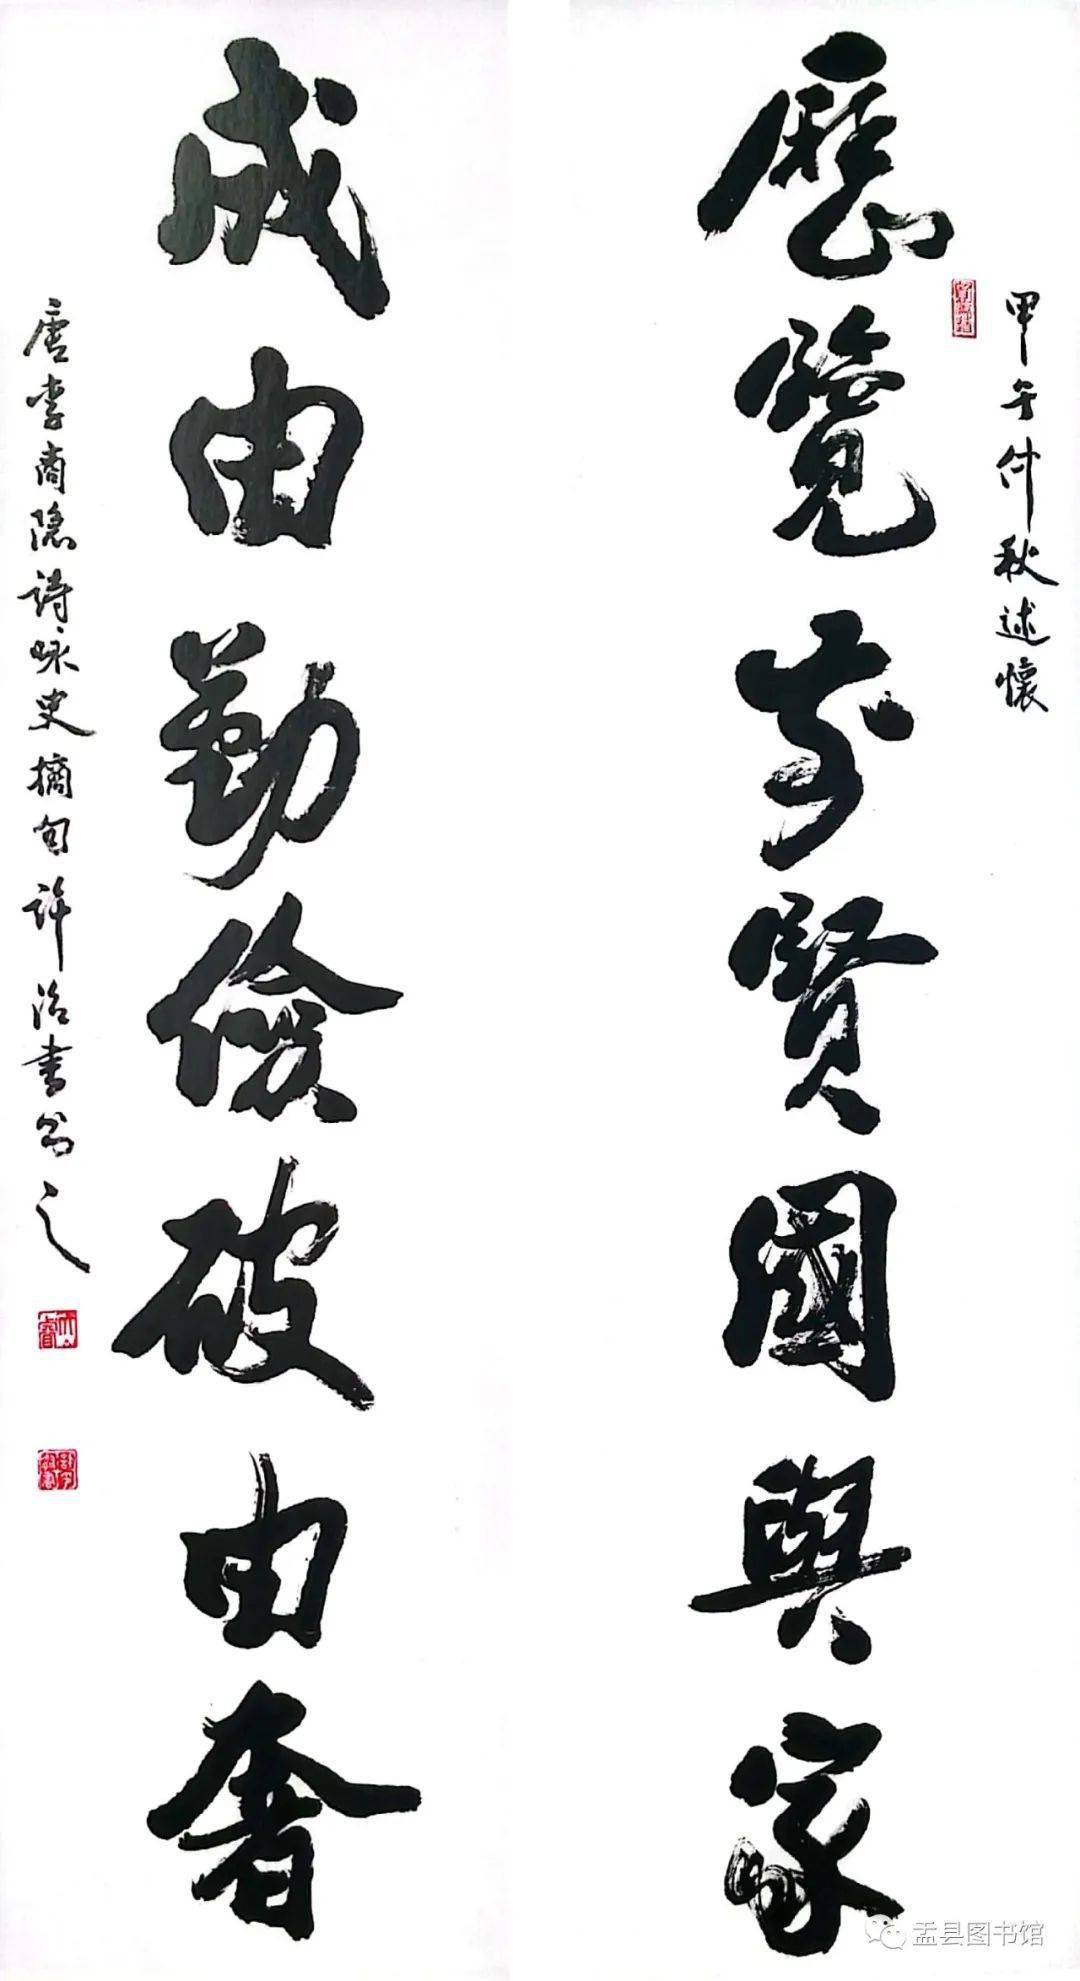 甲午仲秋述懷
歷覽前賢國與家
成由勤儉破由奢
唐李商隐诗咏史摘句许治书之
盂县图书馆